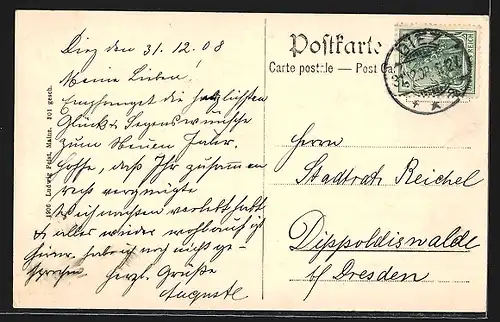 Diez den 31.12.08
Meine Lieben!
Empfanget die herzlichsten
Glück & Segenswünsche
zum Neuen Jahr,
hoffe, daß Ihr zusammen
recht vergnügte
Weihnachten verlebt habt
& alles wieder wohlauf ist
hier. habe ich noch nicht ge-
Herzl. Grüße
Auguste
1906 Ludwig Feist, Mainz. 101 gesch.
Postkarte
Carte postale — Post Car
DIEZ
REICH
Herrn
Stadtrat Reichel
Dippoldiswalde
b/ Dresden